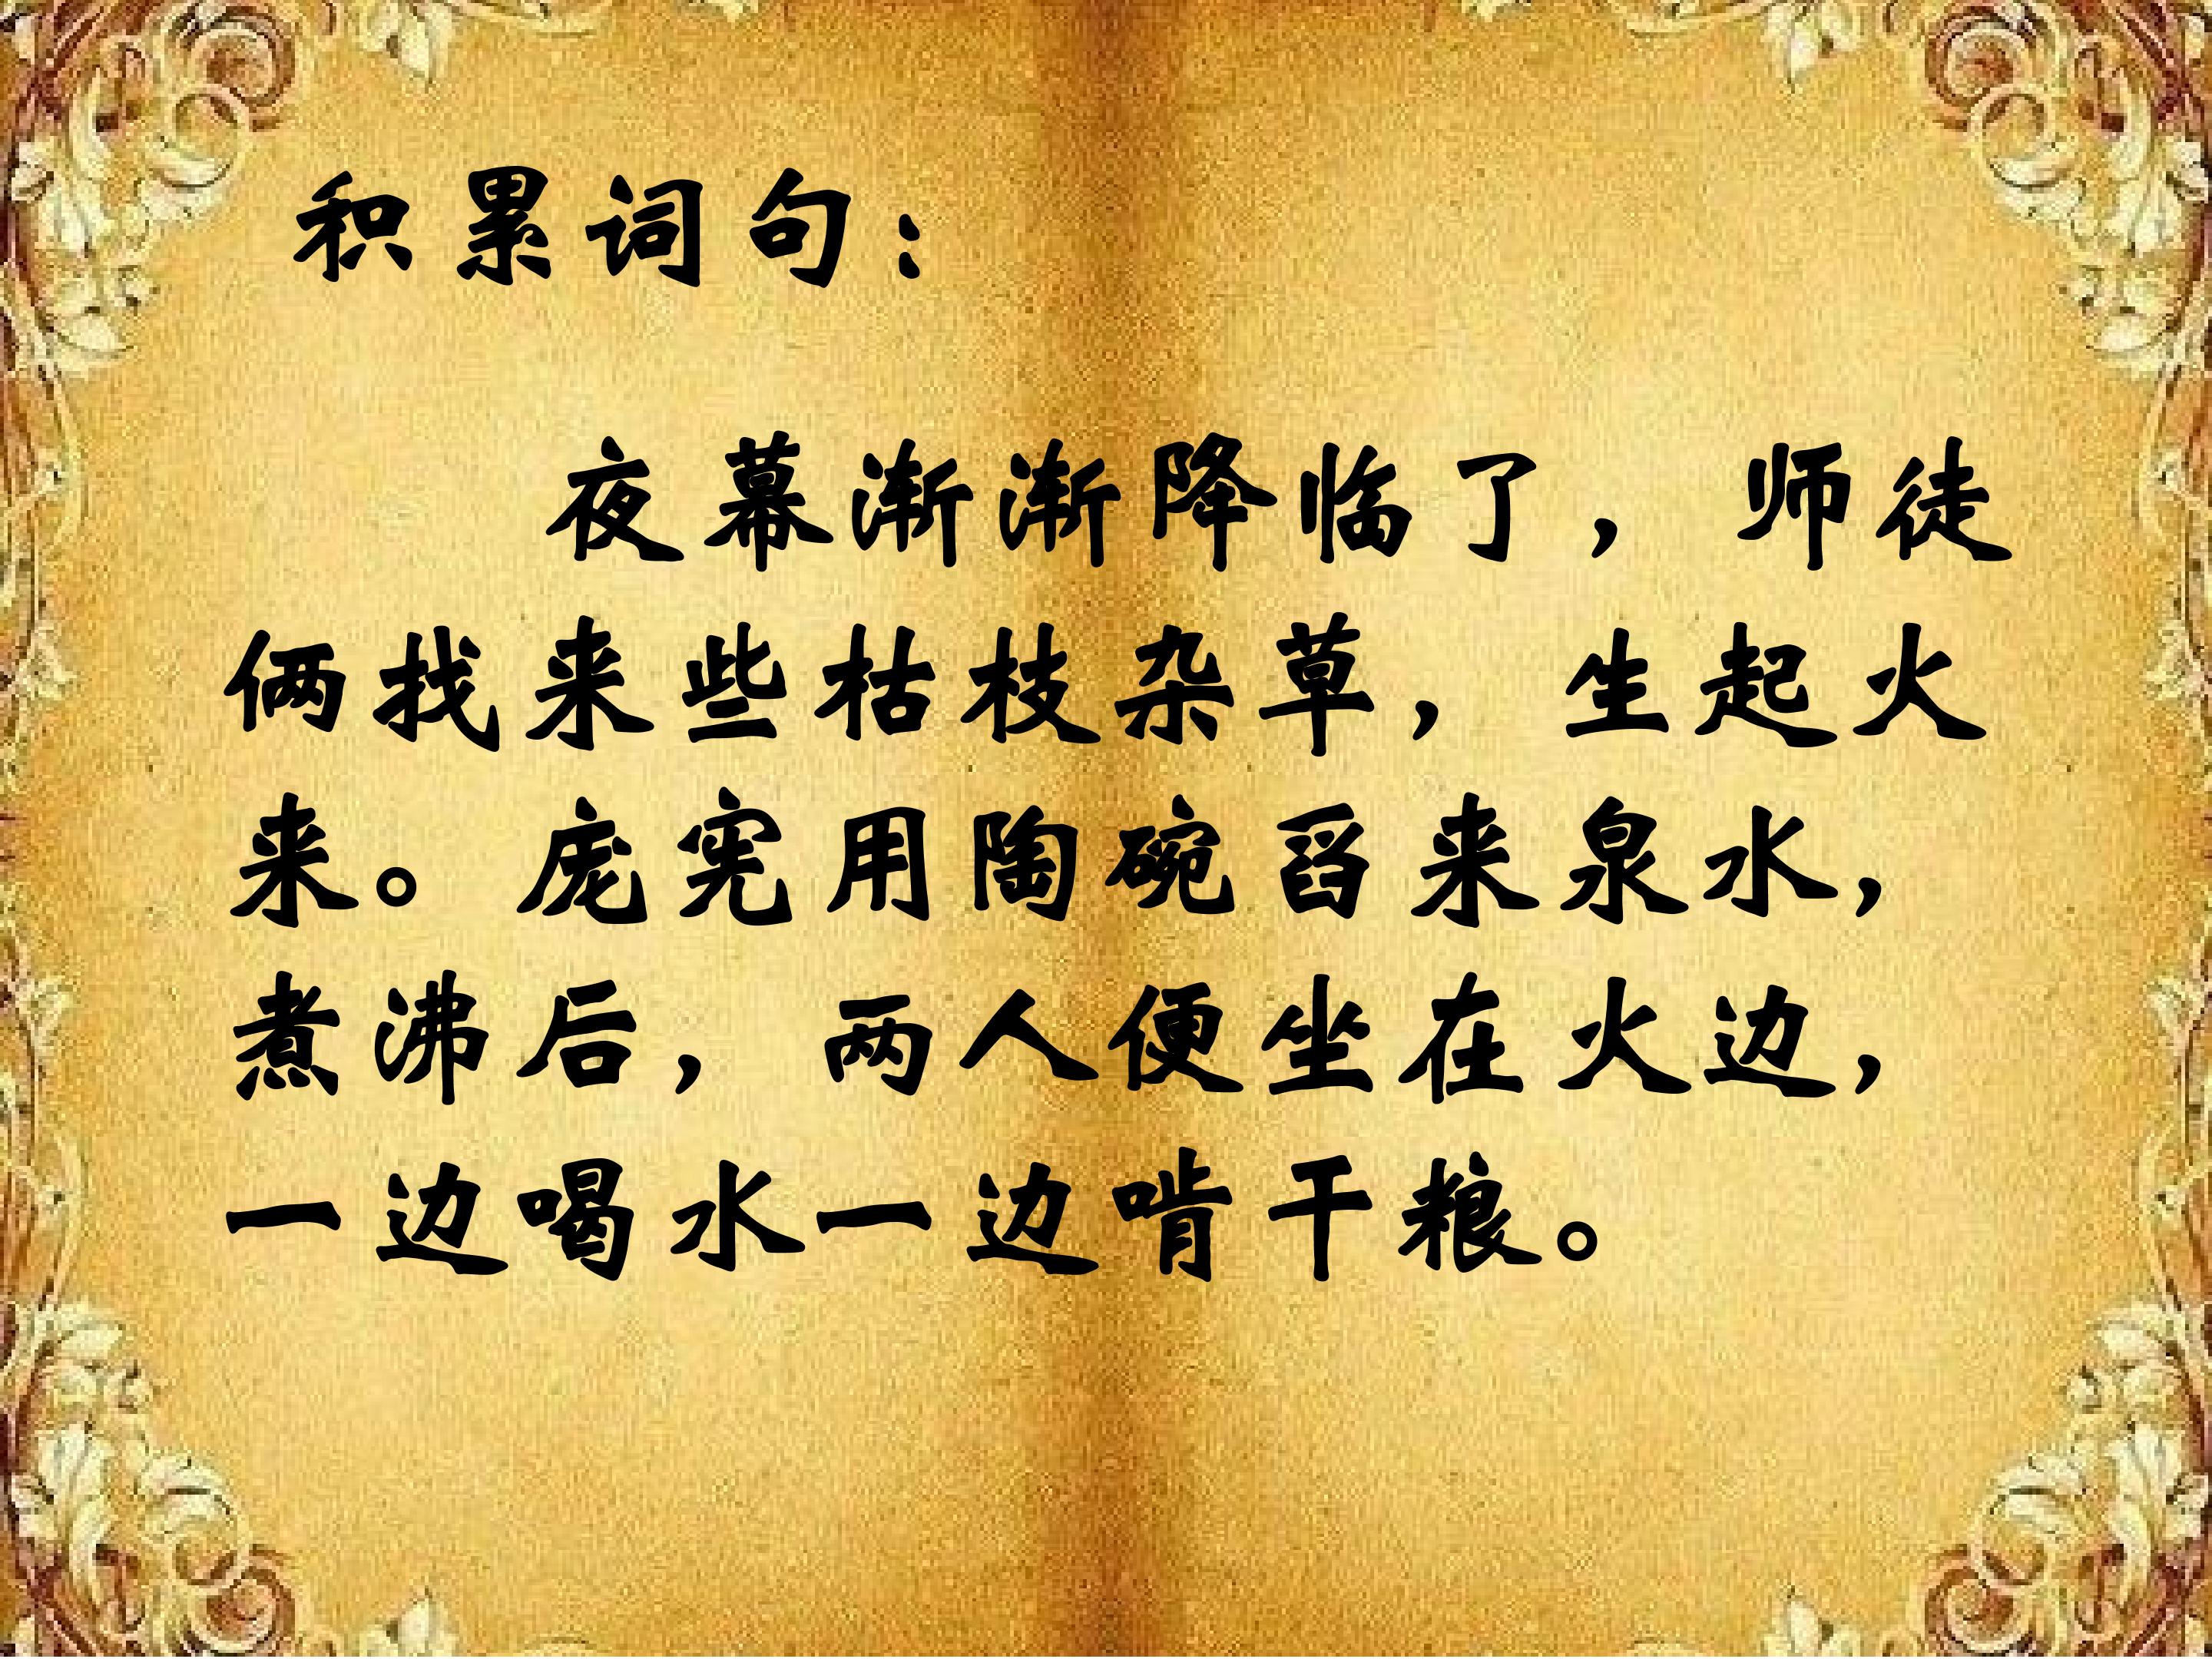 积累词句：
夜幕渐渐降临了，师徒
俩找来些枯枝杂草，生起火
来。庞宪用陶碗舀来泉水，
煮沸后，两人便坐在火边，
一边喝水一边啃干粮。